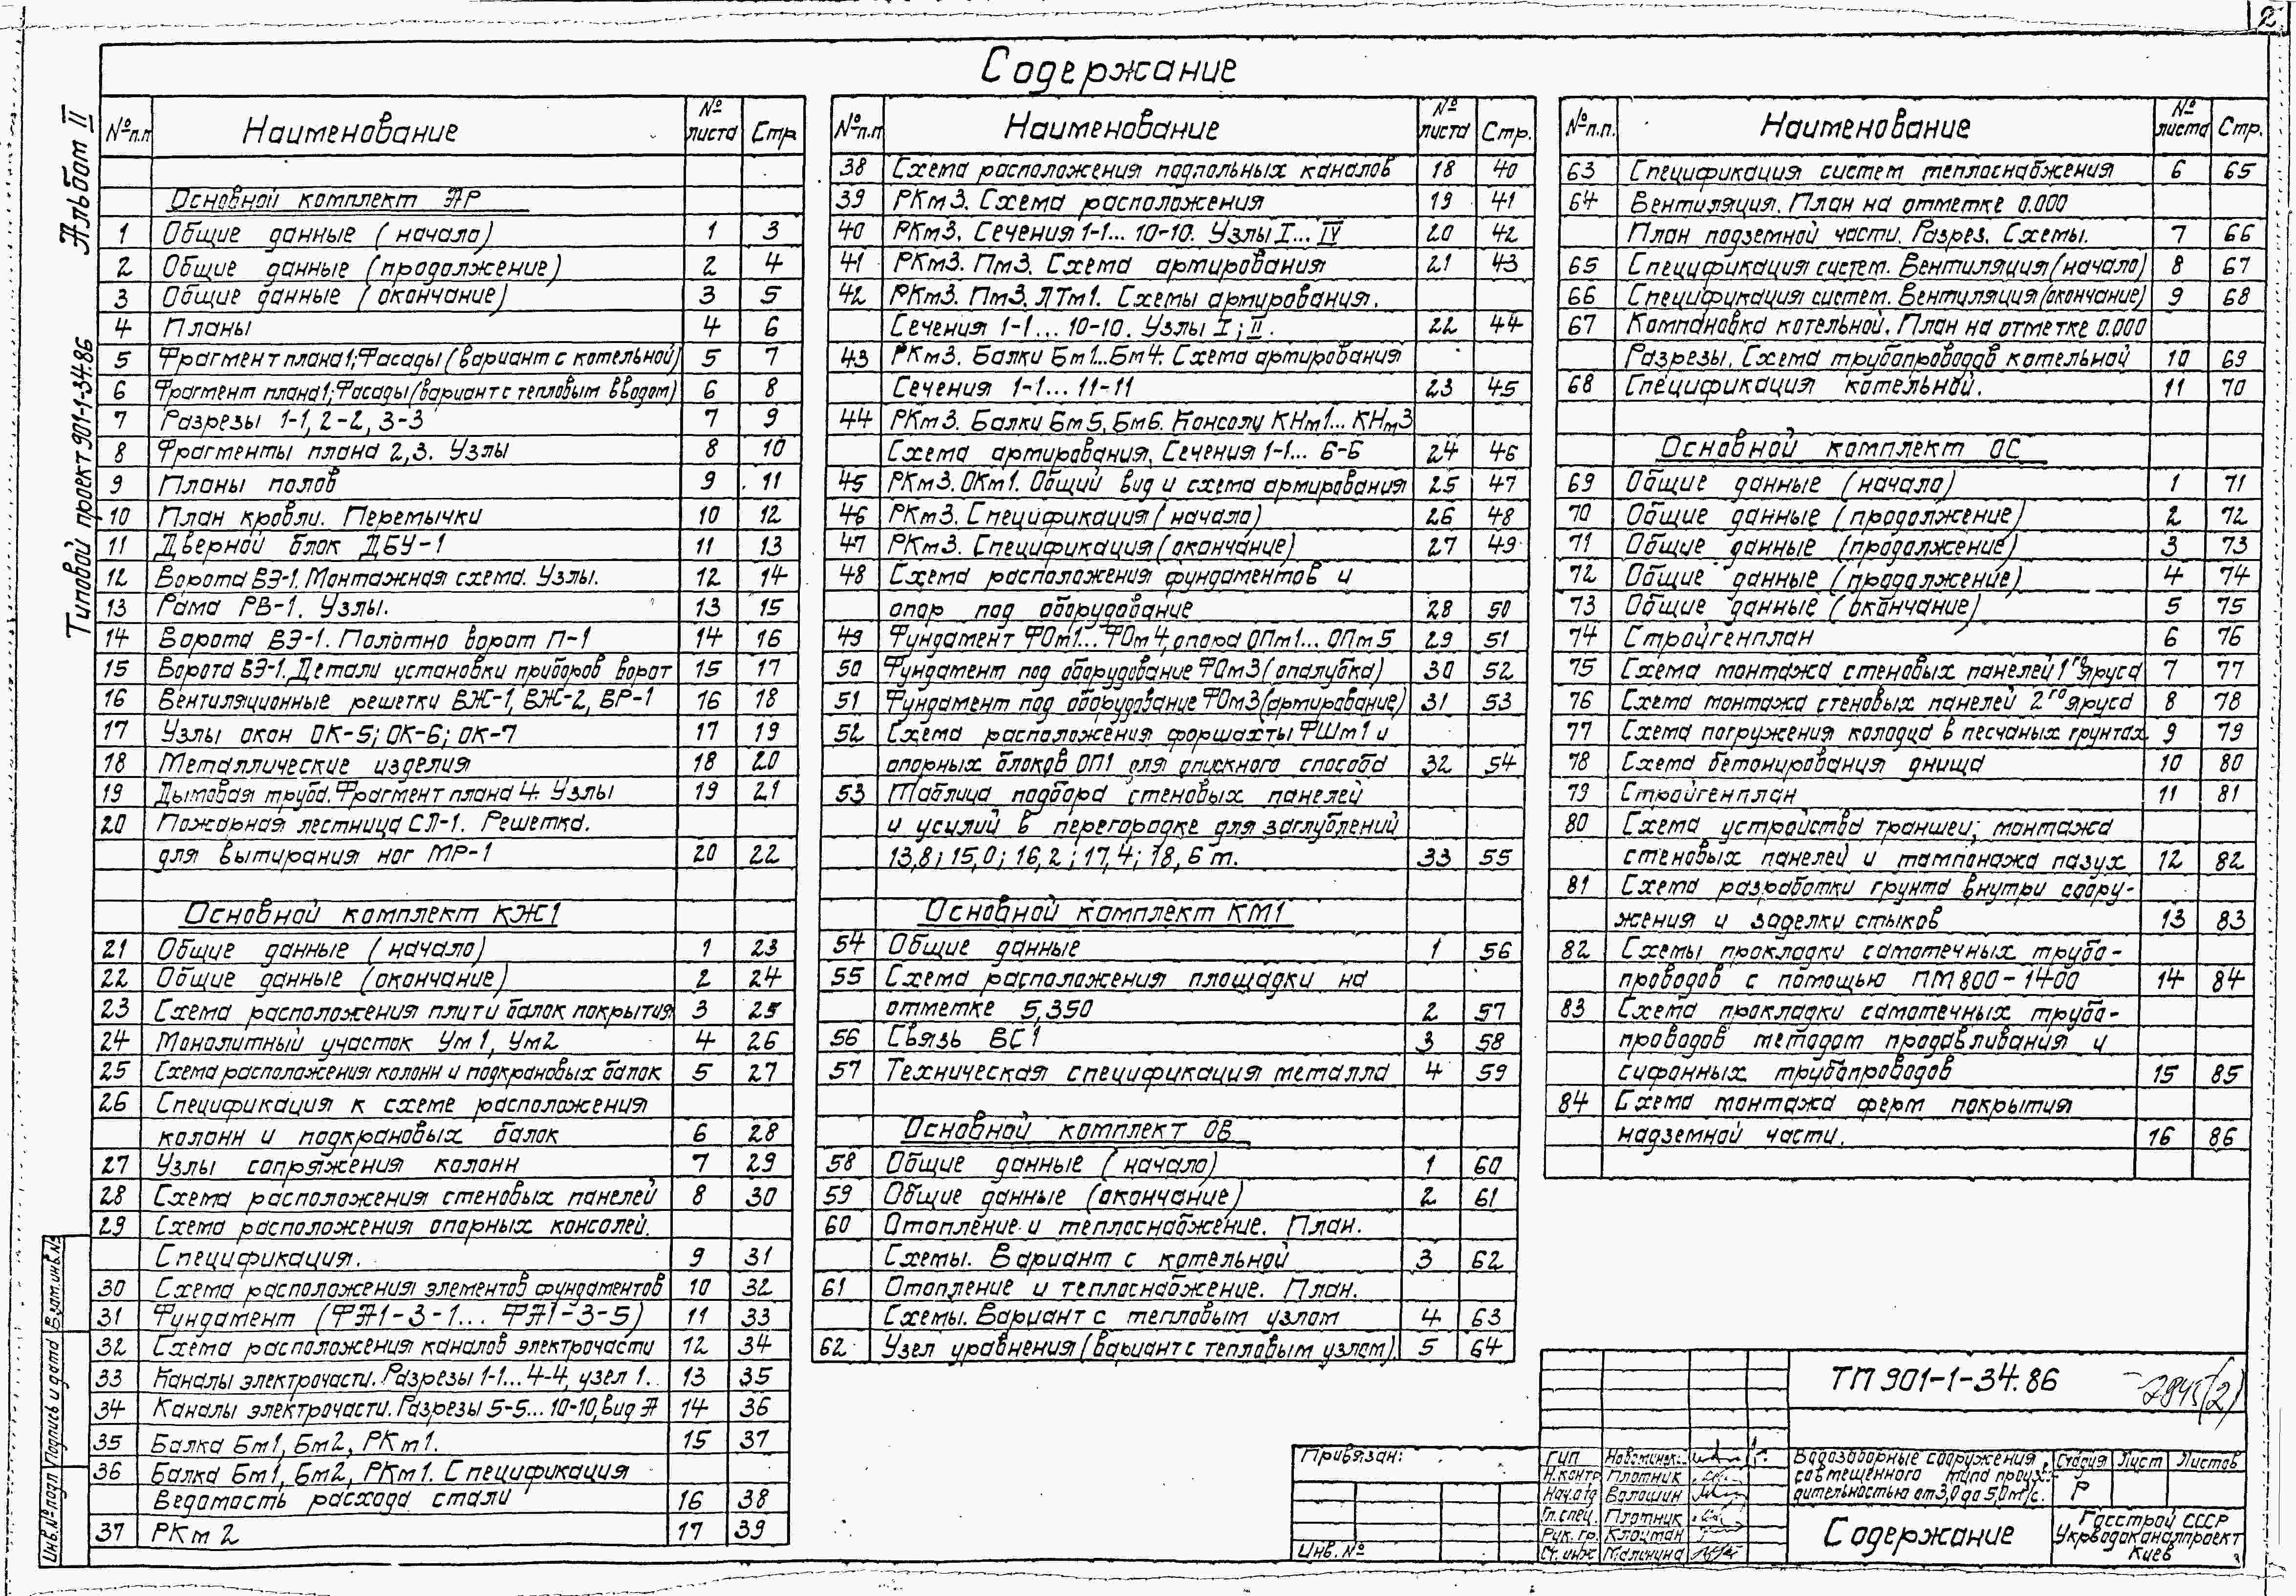 2
Содержание
Альбом II
Типовой проект 901-1-34.86
№п.п Наименование № листа Стр
Основной комплект АР
1 Общие данные (начало) 1 3
2 Общие данные (продолжение) 2 4
3 Общие данные (окончание) 3 5
4 Планы 4 6
5 Фрагмент плана 1; Фасады (вариант с котельной) 5 7
6 Фрагмент плана 1; Фасады (вариант с тепловым вводом) 6 8
7 Разрезы 1-1, 2-2, 3-3 7 9
8 Фрагменты плана 2,3. Узлы 8 10
9 Планы полов 9 11
10 План кровли. Перемычки 10 12
11 Дверной блок ДБУ-1 11 13
12 Ворота ВЭ-1. Монтажная схема. Узлы. 12 14
13 Рама РВ-1. Узлы. 13 15
14 Ворота ВЭ-1. Полотно ворот П-1 14 16
15 Ворота ВЭ-1. Детали установки приборов ворот 15 17
16 Вентиляционные решетки ВЖ-1, ВЖ-2, ВР-1 16 18
17 Узлы окон ОК-5; ОК-6; ОК-7 17 19
18 Металлические изделия 18 20
19 Дымовая труба. Фрагмент плана 4. Узлы 19 21
20 Пожарная лестница СЛ-1. Решетка.
для вытирания ног МР-1 20 22
Основной комплект КЖ1
21 Общие данные (начало) 1 23
22 Общие данные (окончание) 2 24
23 Схема расположения плит и балок покрытия 3 25
24 Монолитный участок Ум1, Ум2 4 26
25 Схема расположения колонн и подкрановых балок 5 27
26 Спецификация к схеме расположения
колонн и подкрановых балок 6 28
27 Узлы сопряжения колонн 7 29
28 Схема расположения стеновых панелей 8 30
29 Схема расположения опорных консолей.
Спецификация. 9 31
30 Схема расположения элементов фундаментов 10 32
31 Фундамент (ФА1-3-1... ФА1-3-5) 11 33
32 Схема расположения каналов электрочасти 12 34
33 Каналы электрочасти. Разрезы 1-1... 4-4, узел 1. 13 35
34 Каналы электрочасти. Разрезы 5-5... 10-10, вид А 14 36
35 Балка Бм1, Бм2, РКм1. 15 37
36 Балка Бм1, Бм2, РКм1. Спецификация
Ведомость расхода стали 16 38
37 РКм2 17 39
№п.п Наименование № листа Стр.
38 Схема расположения подпольных каналов 18 40
39 РКм3. Схема расположения 19 41
40 РКм3. Сечения 1-1... 10-10. Узлы I... IV 20 42
41 РКм3. Пм3. Схема армирования 21 43
42 РКм3. Пм3. ЛТм1. Схемы армирования.
Сечения 1-1... 10-10. Узлы I; II. 22 44
43 РКм3. Балки Бм1...Бм4. Схема армирования
Сечения 1-1... 11-11 23 45
44 РКм3. Балки Бм5, Бм6. Консолу КНм1... КНм3
Схема армирования. Сечения 1-1... 6-6 24 46
45 РКм3. ОКм1. Общий вид и схема армирования 25 47
46 РКм3. Спецификация (начало) 26 48
47 РКм3. Спецификация (окончание) 27 49
48 Схема расположения фундаментов и
опор под оборудование 28 50
49 Фундамент ФОм1... ФОм4, опора ОПм1... ОПм5 29 51
50 Фундамент под оборудование ФОм3 (опалубка) 30 52
51 Фундамент под оборудование ФОм3 (армирование) 31 53
52 Схема расположения форшахты ФШм1 и
опорных блоков ОП1 для опускного способа 32 54
53 Таблица подбора стеновых панелей
и усилий в перегородке для заглублений
13,8; 15,0; 16,2; 17,4; 18,6 м. 33 55
Основной комплект КМ1
54 Общие данные 1 56
55 Схема расположения площадки на
отметке 5,350 2 57
56 Связь ВС1 3 58
57 Техническая спецификация металла 4 59
Основной комплект ОВ
58 Общие данные (начало) 1 60
59 Общие данные (окончание) 2 61
60 Отопление и теплоснабжение. План.
Схемы. Вариант с котельной 3 62
61 Отопление и теплоснабжение. План.
Схемы. Вариант с тепловым узлом 4 63
62 Узел уравнения (вариант с тепловым узлом). 5 64
№п.п. Наименование № листа Стр.
63 Спецификация систем теплоснабжения 6 65
64 Вентиляция. План на отметке 0.000
План подземной части. Разрез. Схемы. 7 66
65 Спецификация систем. Вентиляция (начало) 8 67
66 Спецификация систем. Вентиляция (окончание) 9 68
67 Компановка котельной. План на отметке 0.000
Разрезы. Схема трубопроводов котельной 10 69
68 Спецификация котельной. 11 70
Основной комплект ОС
69 Общие данные (начало) 1 71
70 Общие данные (продолжение) 2 72
71 Общие данные (продолжение) 3 73
72 Общие данные (продолжение) 4 74
73 Общие данные (окончание) 5 75
74 Стройгенплан 6 76
75 Схема монтажа стеновых панелей 1го яруса 7 77
76 Схема монтажа стеновых панелей 2го яруса 8 78
77 Схема погружения колодца в песчаных грунтах 9 79
78 Схема бетонирования днища 10 80
79 Стройгенплан 11 81
80 Схема устройства траншеи; монтажа
стеновых панелей и тампонажа пазух 12 82
81 Схема разработки грунта внутри соору-
жения и заделки стыков 13 83
82 Схемы прокладки самотечных трубо-
проводов с помощью ПМ800-1400 14 84
83 Схема прокладки самотечных трубо-
проводов методом продавливания и
сифонных трубопроводов 15 85
84 Схема монтажа ферм покрытия
надземной части. 16 86
Взам.инв.№
Подпись и дата
Инв.№подл
Привязан:
Инв.№
ГИП
Н.контр. Плотник
Нач.отд Волошин
Гл.спец. Плотник
Рук.гр. Клоцман
Ст.инж Малинина
ТП 901-1-34.86
7845(2)
Водозаборные сооружения
совмещенного типа произ-
дительностью от 3,0 до 5,0 м³/с.
Стадия Лист Листов
Р
Содержание
Госстрой СССР
Укрводоканалпроект
Киев
3